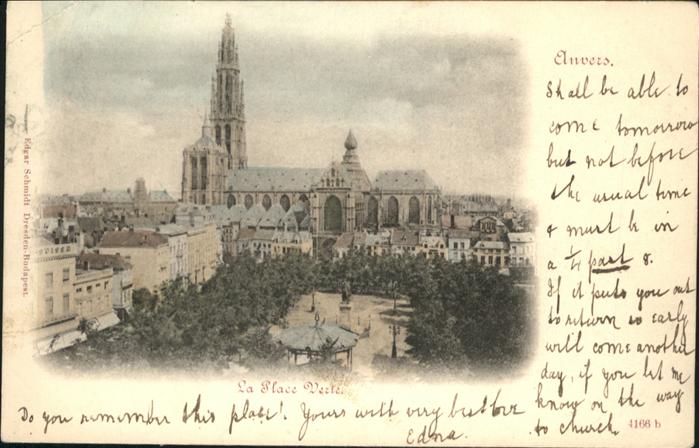 Anvers.
Shall be able to
come tomorrow
but not before
the usual time
& must be in
a ¼ past 8.
If it puts you out
to return so early
will come another
day, if you let me
know on the way
to church.
4166 b
La Place Verte.
Do you remember this place! Yours with very best love
Edna.
Edgar Schmidt Dresden-Budapest.